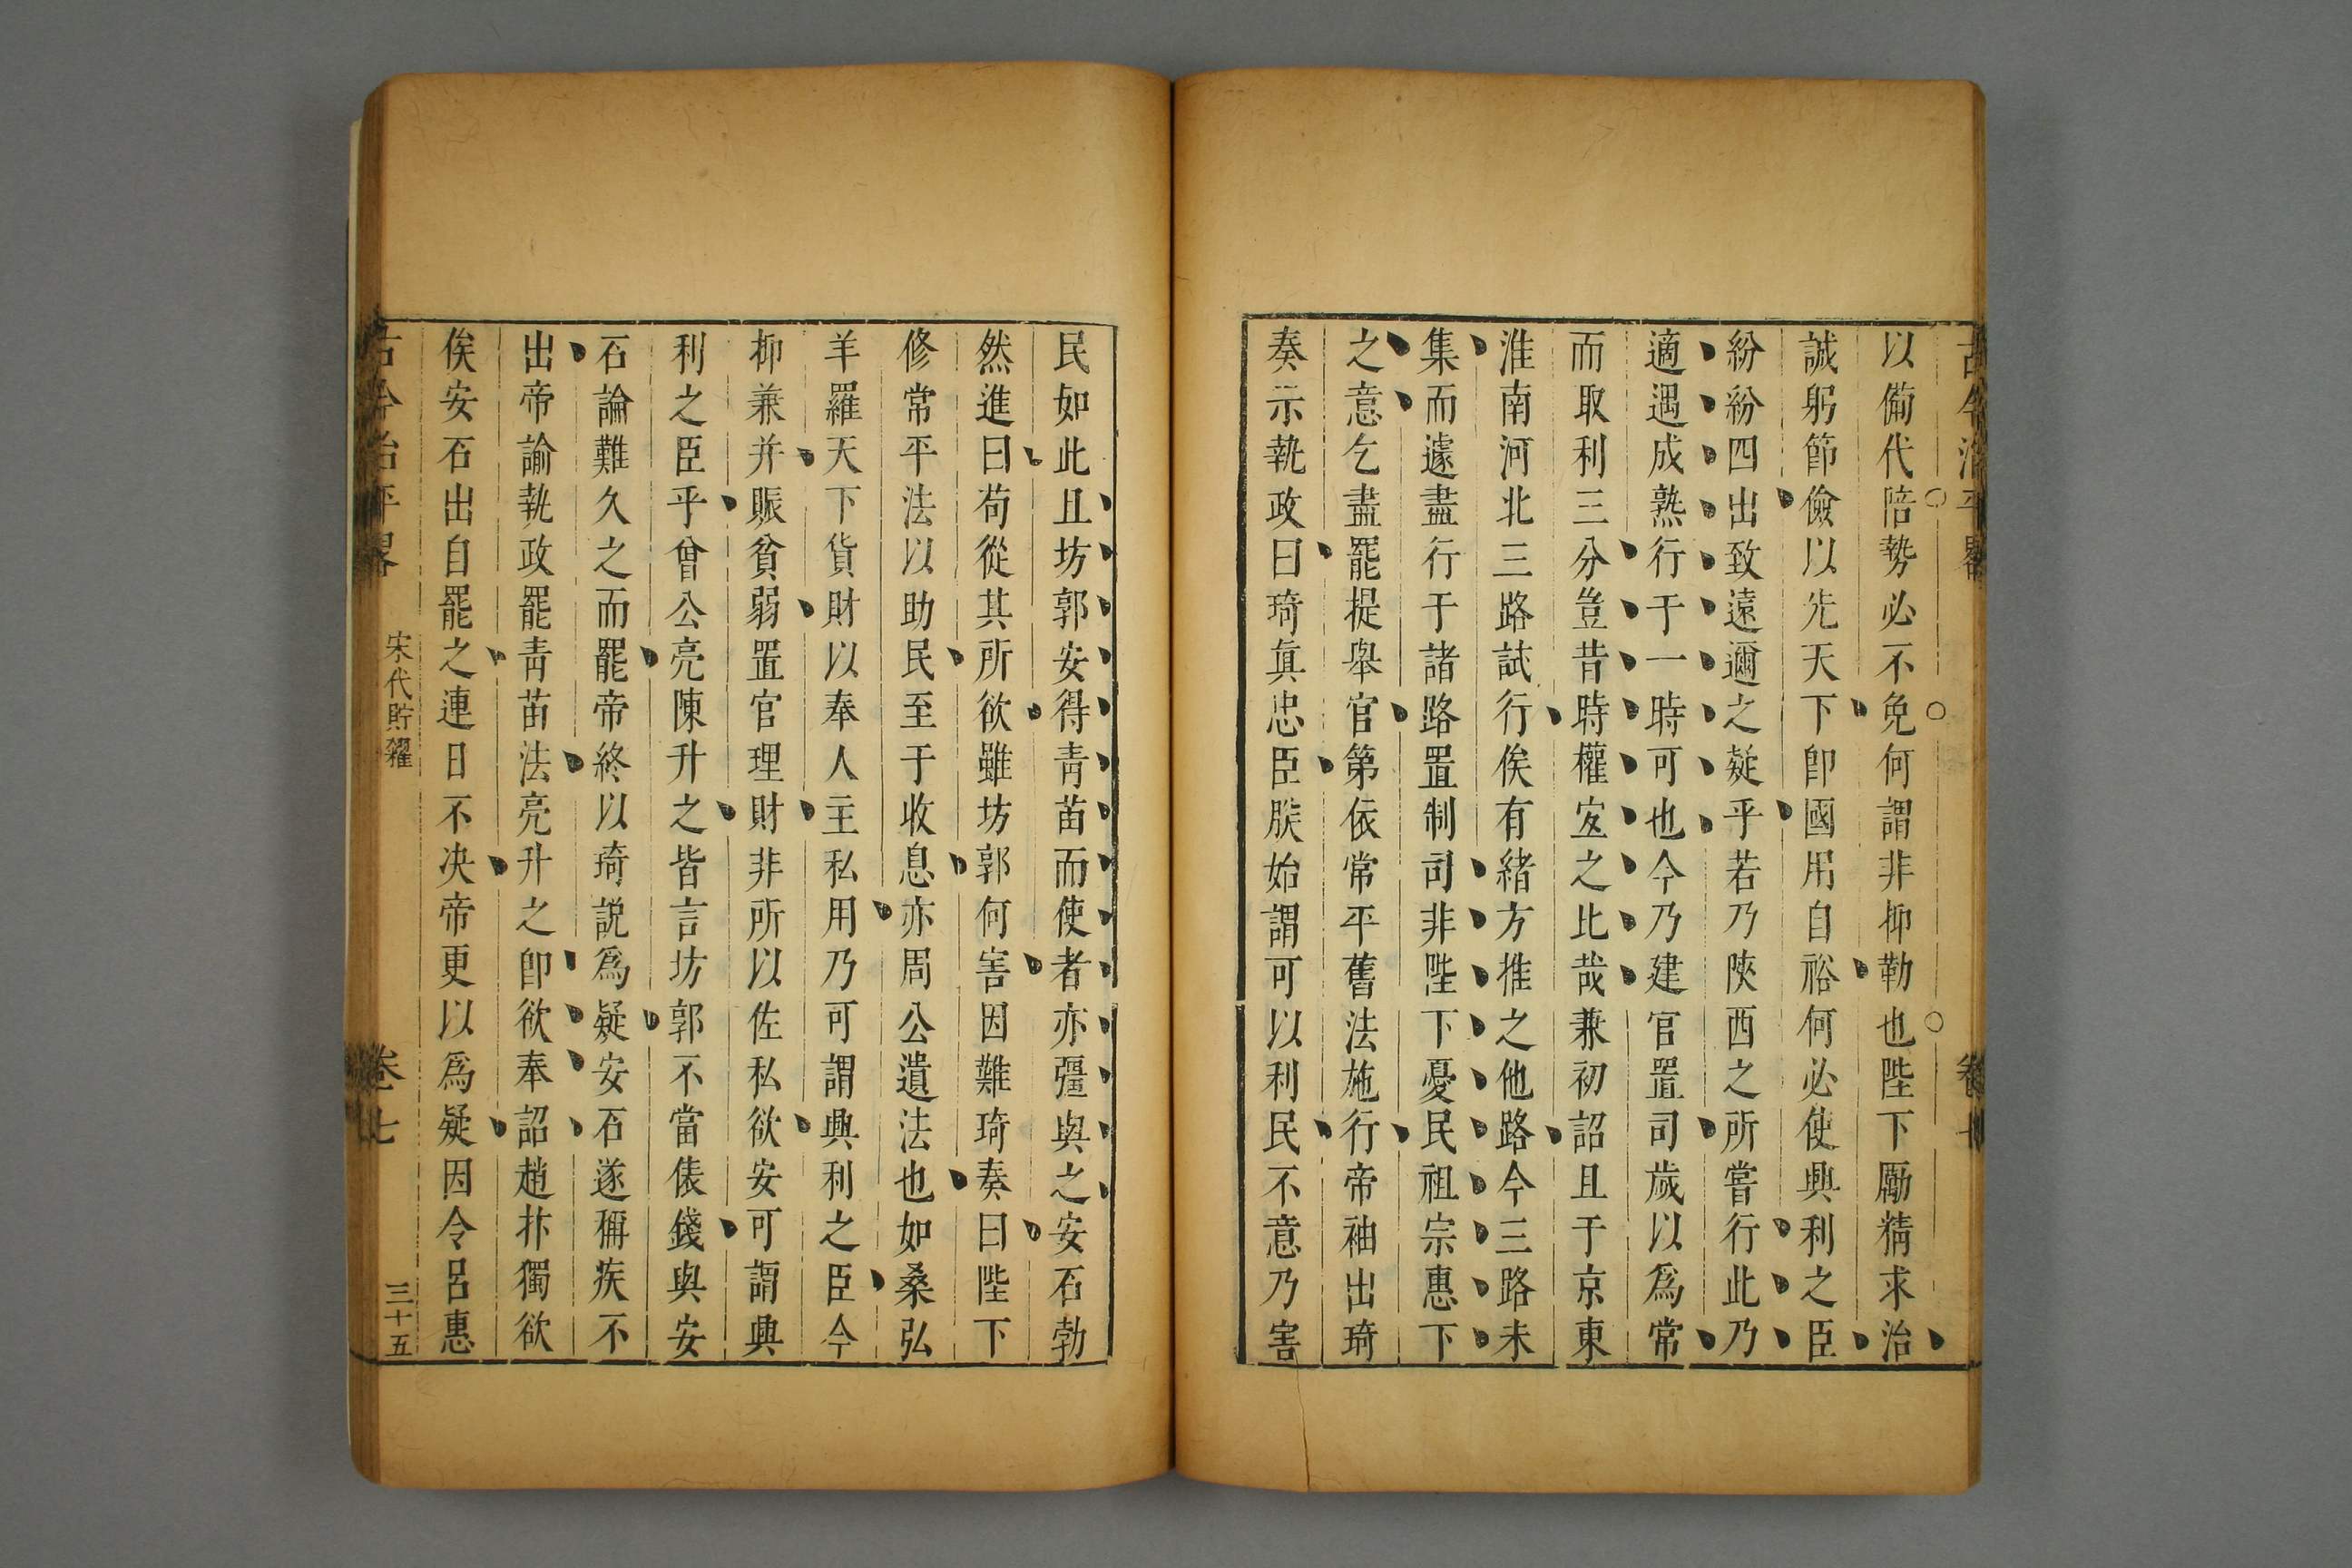 古今治平畧
卷七
以備代陪勢必不免何謂非抑勒也陛下勵精求治
誠躬節儉以先天下卽國用自裕何必使興利之臣
紛紛四出致遠邇之疑乎若乃陝西之所嘗行此乃
適遇成熟行于一時可也今乃建官置司歲以爲常
而取利三分豈昔時權宐之比哉兼初詔且于京東
淮南河北三路試行俟有緒方推之他路今三路未
集而遽盡行于諸路置制司非陛下憂民祖宗惠下
之意乞盡罷提舉官第依常平舊法施行帝袖出琦
奏示執政曰琦眞忠臣朕始謂可以利民不意乃害
民如此且坊郭安得靑苗而使者亦彊與之安石勃
然進曰苟從其所欲雖坊郭何害因難琦奏曰陛下
修常平法以助民至于收息亦周公遺法也如桑弘
羊羅天下貨財以奉人主私用乃可謂興利之臣今
抑兼并賑貧弱置官理財非所以佐私欲安可謂興
利之臣乎曾公亮陳升之皆言坊郭不當俵錢與安
石論難久之而罷帝終以琦說爲疑安石遂稱疾不
出帝諭執政罷靑苗法亮升之卽欲奉詔趙抃獨欲
俟安石出自罷之連日不决帝更以爲疑因令呂惠
古今治平畧
宋代貯糴
卷七
三十五